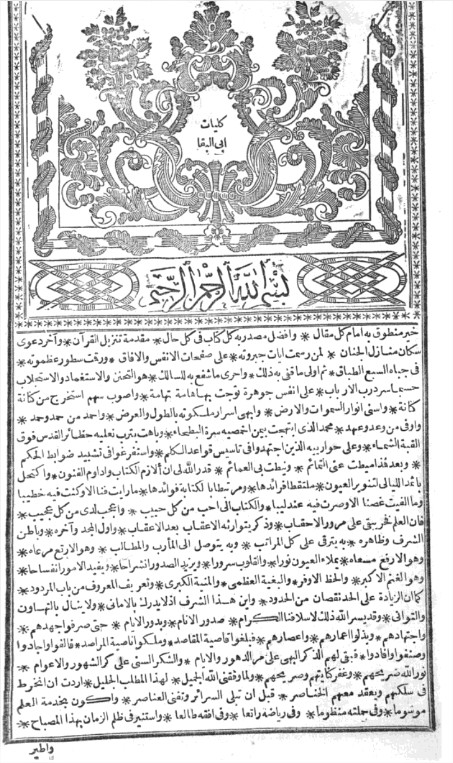 كليات
ابى البقا
بسم الله الرحمن الرحيم
خير منطوق به امام كل مقال * وافضل مصدر به كل كتاب في كل حال * مقدمة تنزيل القرآن * وآخر دعوى
سكان منازل الجنان * لمن رسمت آيات جبروته * على صفحات الانفس والآفاق * ورقت سطور عظموته *
في جباه السبع الطباق * ثم اولى ما قفى به ذلك * واحرى ما شفع به للسالك * هو التحنن والاستغماد والاستجلاب
حسبما سر درب الارباب * على انفس جوهرة توجت بها هامة تهامة * واصوب سهم استخرج من كنانة
كنانة * واسنى انوار السموات والارض * وابهى اسرار ملكوته بالطول والعرض * واحمد من حمد وحمد *
واوفى من وعد وعهد * محمد الذى ابتهجت بيمن اخمصيه سرة البطحاء * وباهت بترب نعليه حظائر القدس فوق
القبة الشماء * وعلى حواريه الذين اجتهدوا في تاسيس قواعد الكلم * واستفرغوا في تشييد ضوابط الحكم
* وبعد فمذ اميطت عنى التمائم * ونيطت بى العمائم * قدر الله لى ان الازم الكتاب واداوم الفنون * واكتحل
باثمد الليالى لتنوير العيون * ملتقطا فرائدها * ومرتبطا بالكتابة فوائدها * ما رايت فنا الا وكنت فيه خطيبا
* وما الفيت غصنا الا وصرت فيه عندليبا * والكتاب الى احب من كل حبيب * واعجب لدى من كل عجيب *
فان العلم فخر يبقى على مرور الاحقاب * وذكر يتوارثه الاعقاب بعد الاعقاب * واول المجد وآخره * وباطن
الشرف وظاهره * به يترقى على كل المراتب * وبه يتوصل الى المآرب والمطالب * وهو الارتع مرعاه *
وهو الارفع مسعاه * يملاء العيون نورا * والقلوب سرورا * ويزيد الصدور انشراحا * ويفيد الامور انفساحا *
وهو الغنم الاكبر * والحظ الاوفر * والبغية العظمى * والمنية الكبرى * وتعريف المعروف من باب المردود *
كما ان الزيادة على الحد نقصان من المحدود * واين هذا الشرف اذ لا يدرك بالامانى * ولا ينال بالتهاون
والتوانى * وقد يسر الله ذلك لاسلافنا الكرام * صدور الانام * وبدور الايام * حتى صرفوا جهدهم *
واجتهادهم * وبذلوا اعمارهم * واعصارهم * فبلغوا قاصية المقاصد * وملكوا ناصية المراصد * فالفوا واجادوا
وصنفوا وافادوا * فبقى لهم الذكر البهى على مر الدهور والايام * والشكر السنى على كر الشهور والاعوام *
نور الله ضريحهم * وغفر كنايتهم وصريحهم * ولما وفقنى الله الجميل * لهذا المطلب الجليل * اردت ان انخرط
في سلكهم ويعقد معهم الخناصر * قبل ان تبلى السرائر وتفنى العناصر * واكون بخدمة العلم
موسوما * وفى حملته منظوما * وفى رياضه راتعا * وفى افقه طالعا * واستنير فى ظلم الزمان بهذا المصباح *
واطير